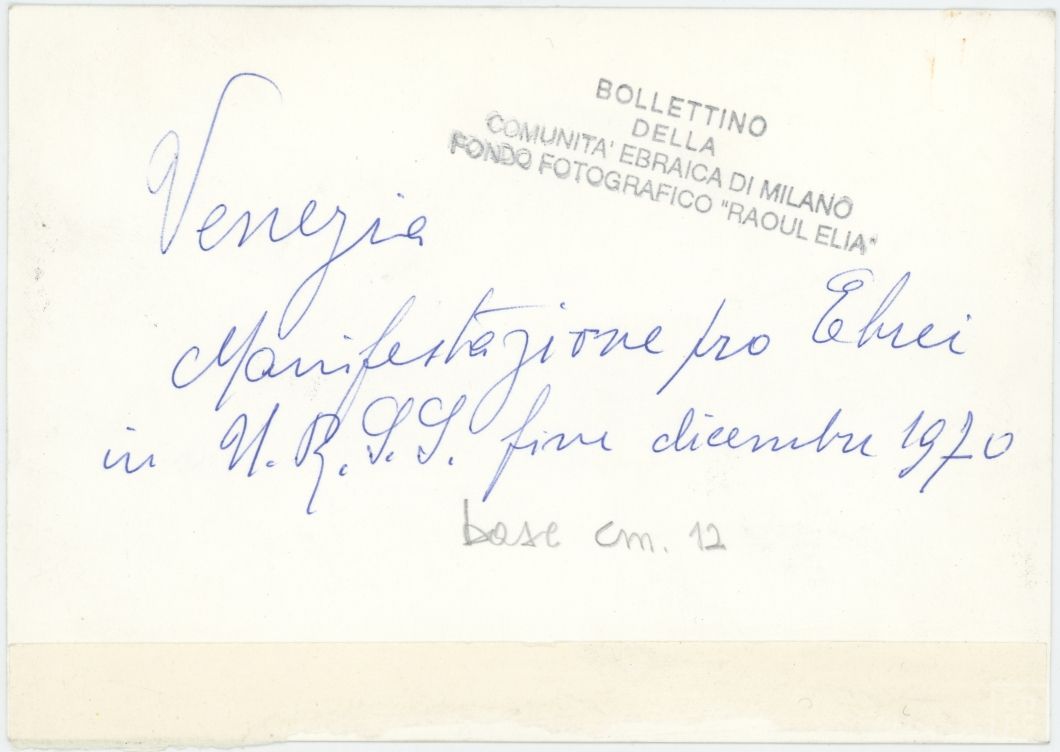 BOLLETTINO
DELLA
COMUNITA' EBRAICA DI MILANO
FONDO FOTOGRAFICO "RAOUL ELIA"
Venezia
Manifestazione pro Ebrei
in U.R.S.S. fine dicembre 1970
base cm. 12